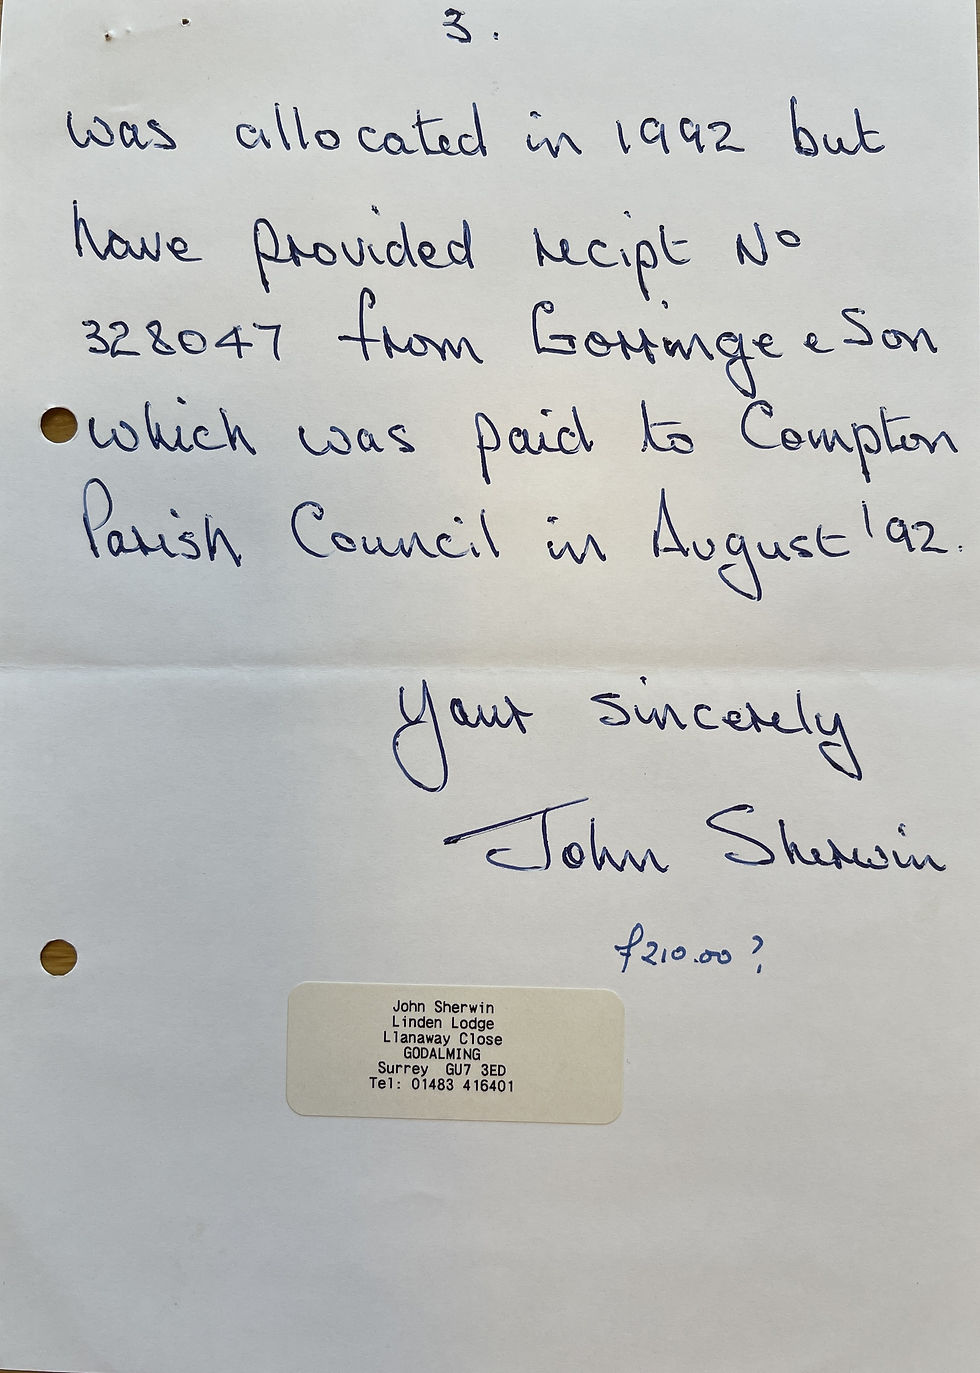 3.
was allocated in 1992 but
have provided recipt Nº
328047 from Gorringe e Son
which was paid to Compton
Parish Council in August '92.
Your sincerely
John Sherwin
£210.00?
John Sherwin
Linden Lodge
Llanaway Close
GODALMING
Surrey GU7 3ED
Tel: 01483 416401